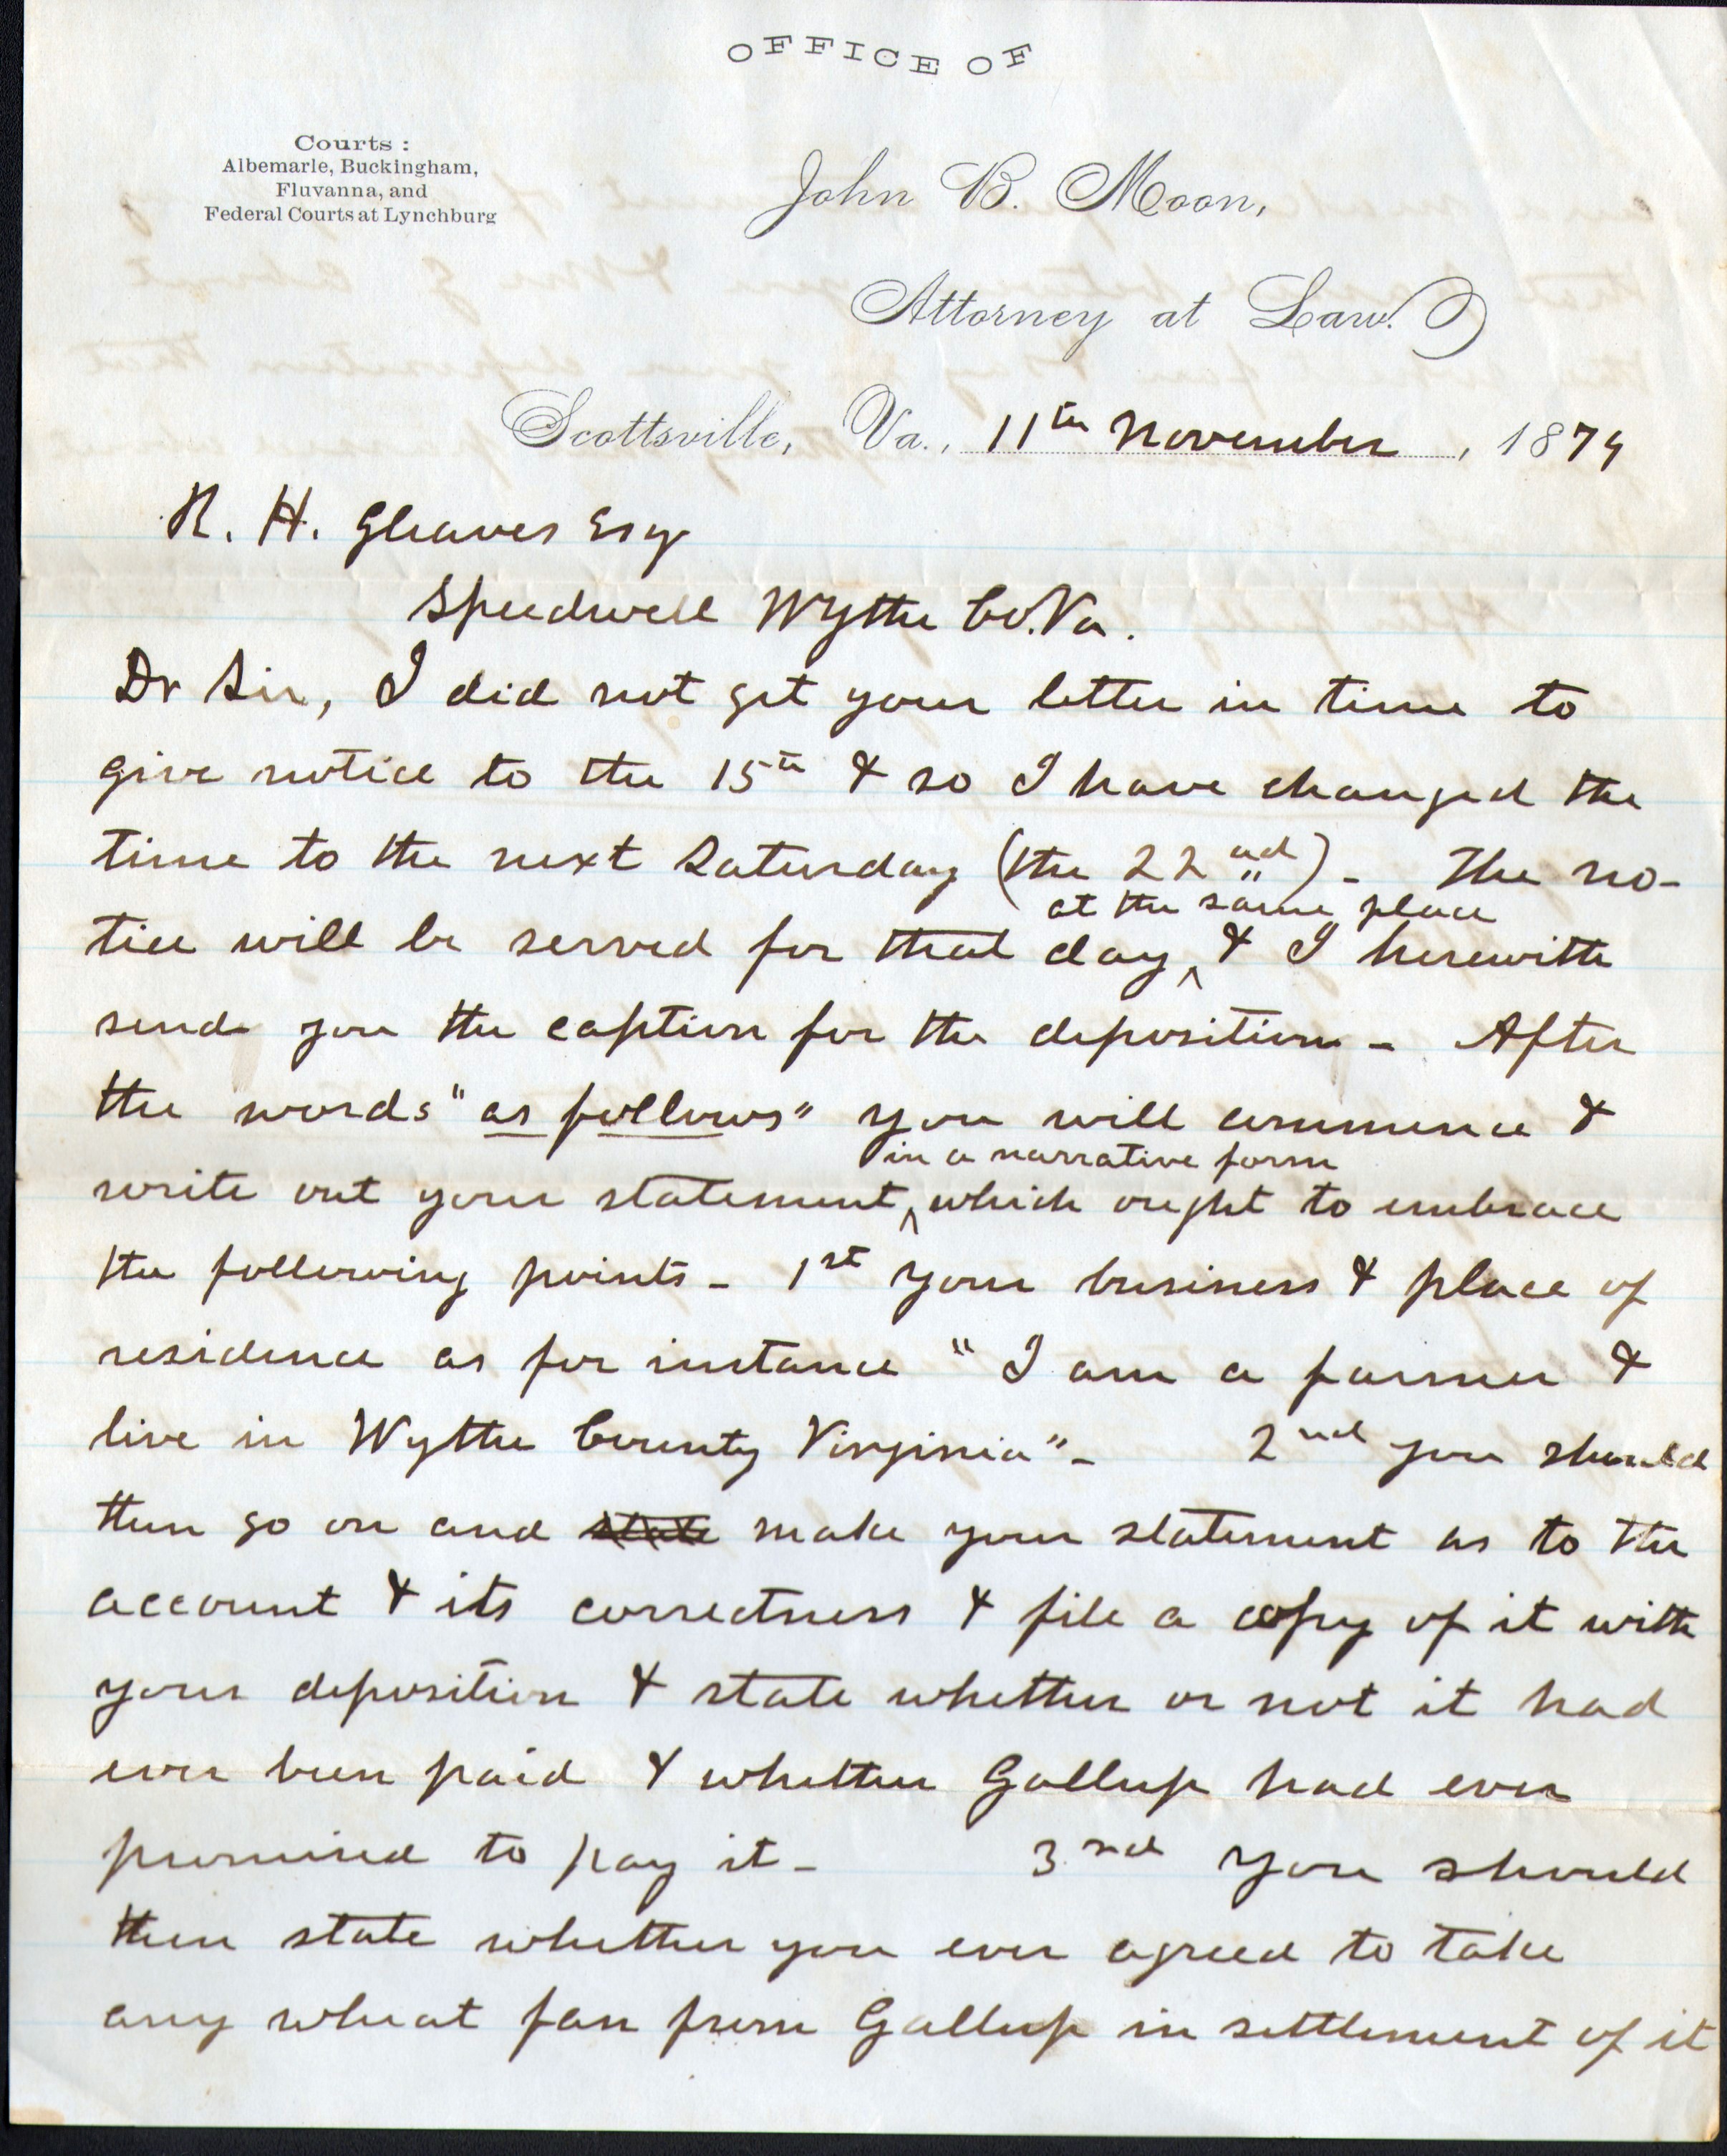 OFFICE OF
Courts :
Albemarle, Buckingham,
Fluvanna, and
Federal Courts at Lynchburg
John B. Moon,
Attorney at Law.
Scottsville, Va., 11th November, 1879
R. H. Gleaves Esqr
Speedwell Wythe Co. Va.
Dr Sir, I did not get your letter in time to
give notice to the 15th & so I have changed the
time to the next Saturday (the 22nd) - The no-
at the same place
tice will be served for that day ^ & I herewith
send you the caption for the deposition - After
the words "as follows" you will commence &
in a narrative form
write out your statement, ^ which ought to embrace
the following points - 1st your business & place of
residence as for instance "I am a farmer &
live in Wythe County Virginia" - 2nd you should
then go on and state make your statement as to the
account & its correctness & file a copy of it with
your deposition & state whether or not it had
ever been paid & whether Gallup had ever
promised to pay it - 3rd you should
then state whether you ever agreed to take
any wheat fan from Gallup in settlement of it